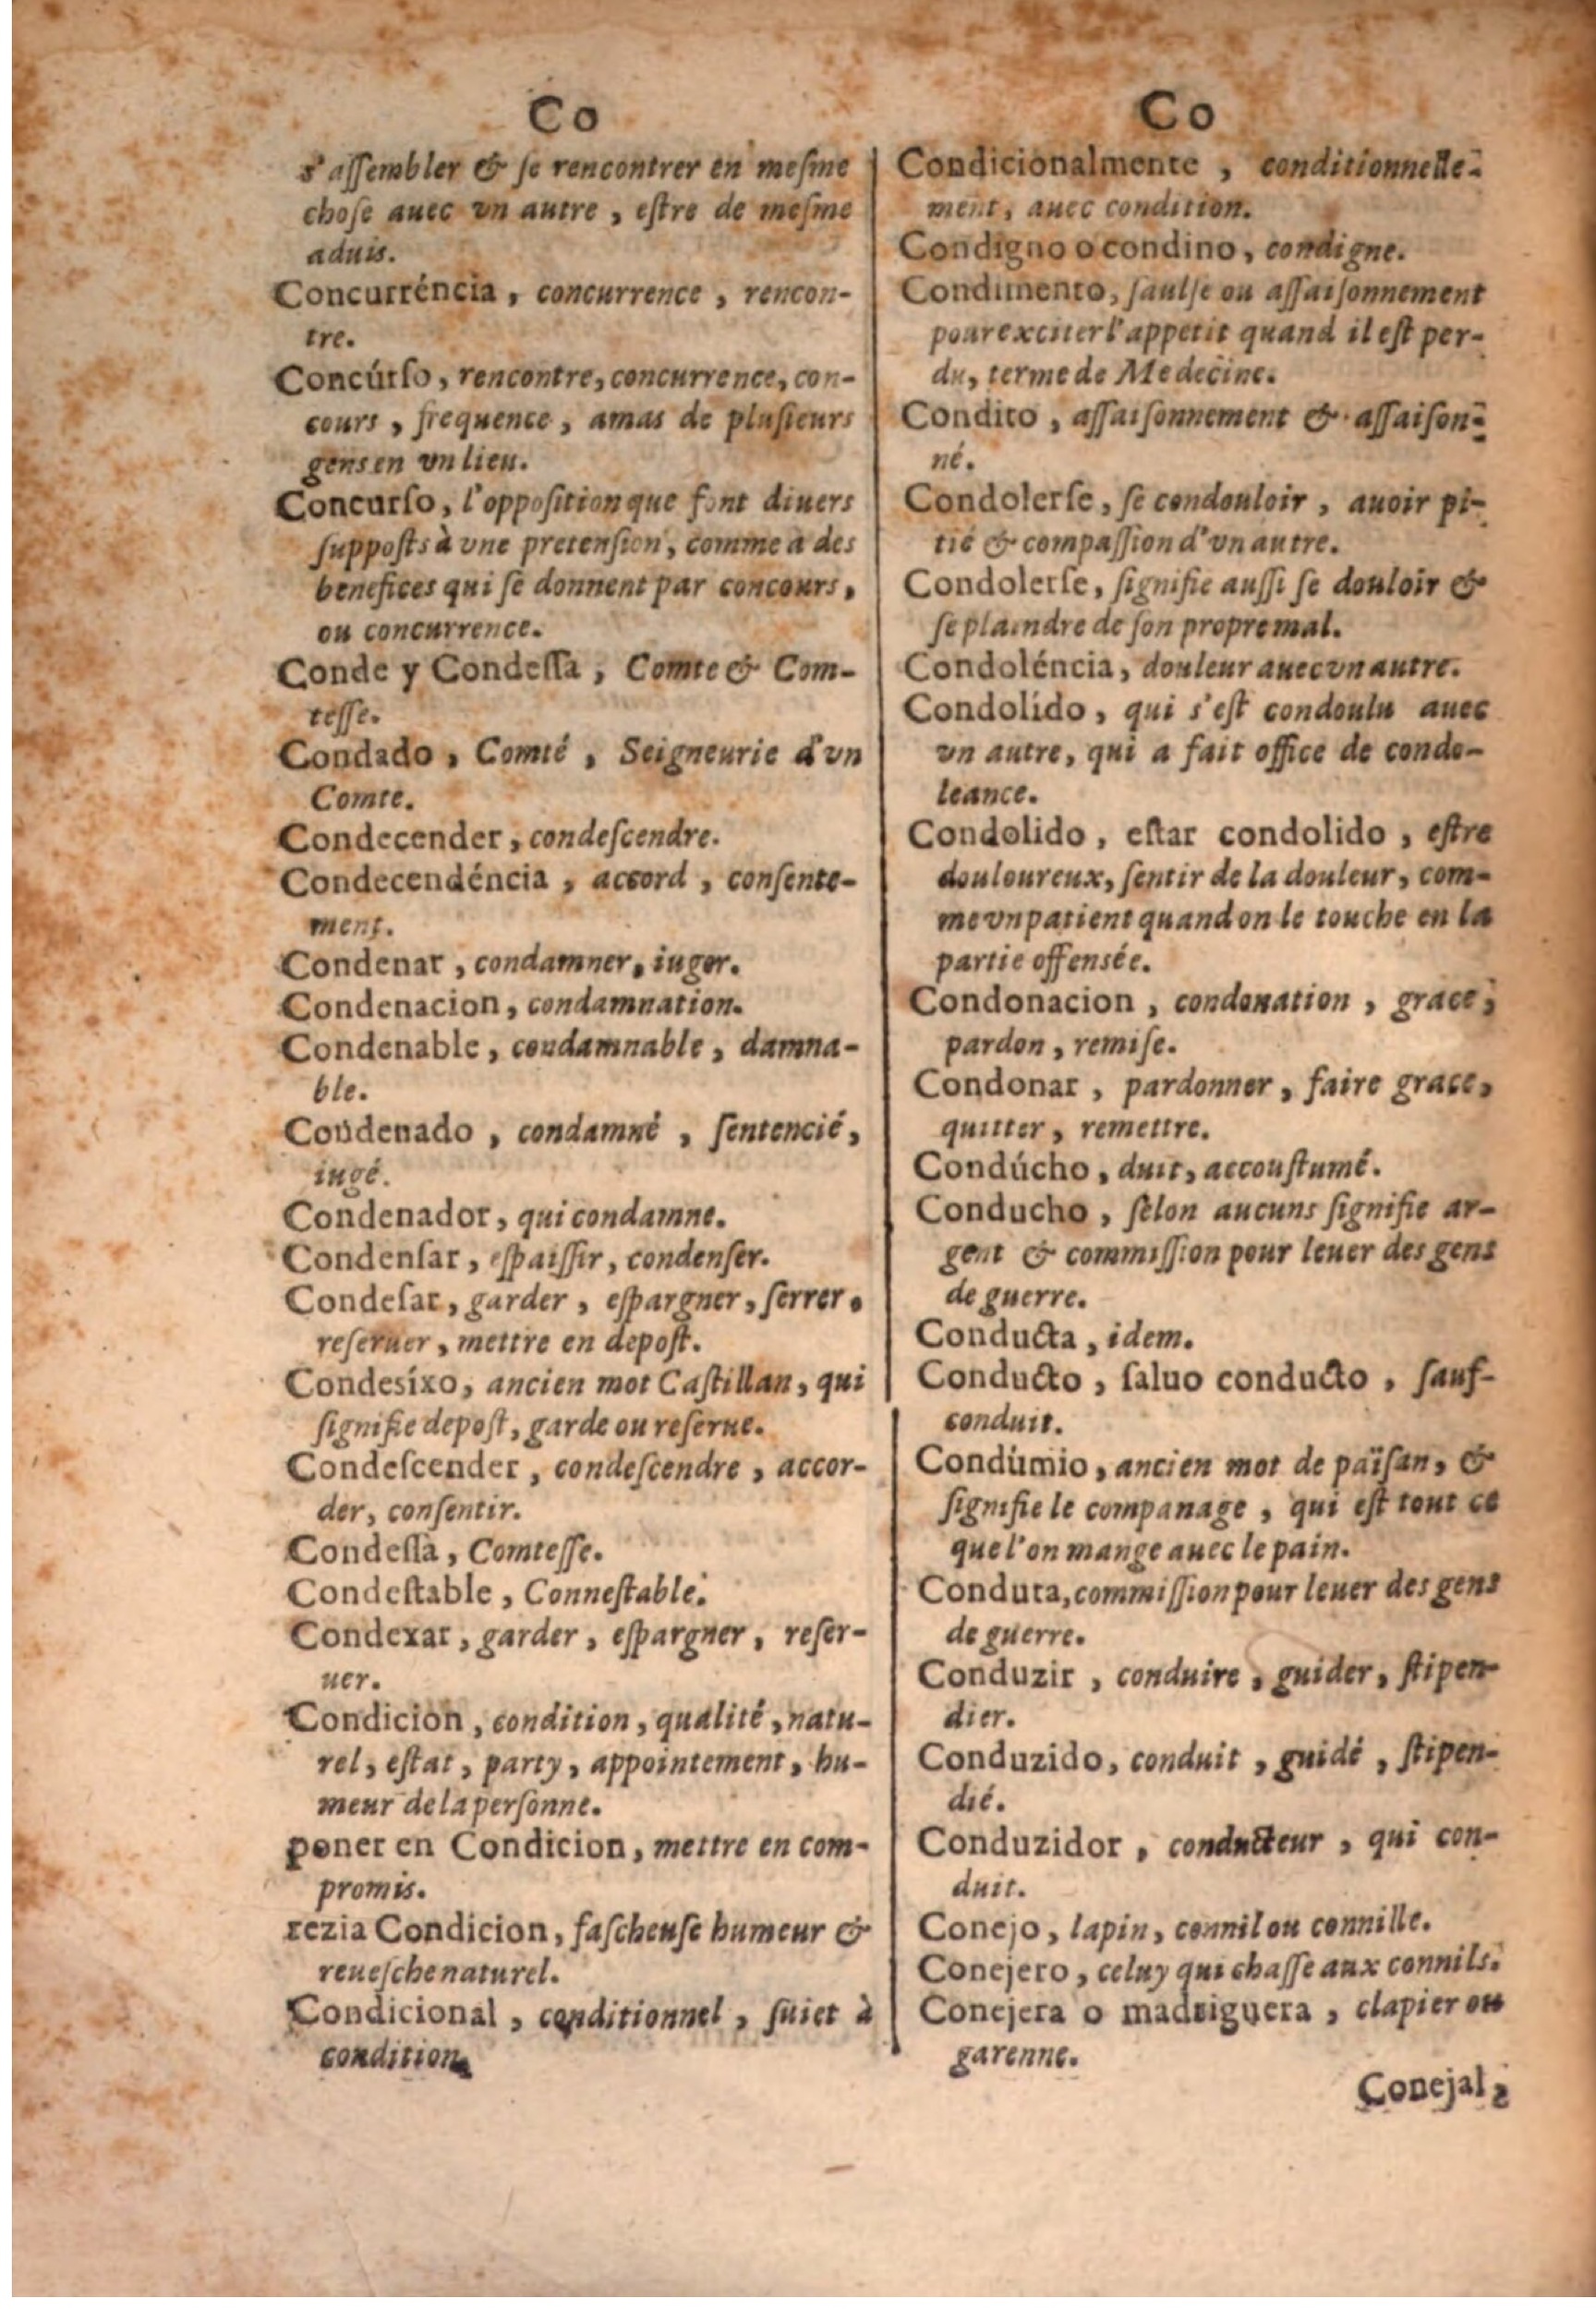 Co
s'assembler & se rencontrer en mesme
chose auec vn autre, estre de mesme
aduis.
Concurréncia, concurrence, rencon-
tre.
Concúrso, rencontre, concurrence, con-
cours, frequence, amas de plusieurs
gens en vn lieu.
Concurso, l'opposition que font diuers
supposts à vne pretension, comme à des
benefices qui se donnent par concours,
ou concurrence.
Conde y Condessa, Comte & Com-
tesse.
Condado, Comté, Seigneurie d'vn
Comte.
Condecender, condescendre.
Condecendéncia, accord, consente-
ment.
Condenar, condamner, iuger.
Condenacion, condamnation.
Condenable, condamnable, damna-
ble.
Condenado, condamné, sentencié,
iugé.
Condenador, qui condamne.
Condensar, espaissir, condenser.
Condesar, garder, espargner, serrer,
reseruer, mettre en depost.
Condesíxo, ancien mot Castillan, qui
signifie depost, garde ou reserue.
Condescender, condescendre, accor-
der, consentir.
Condessa, Comtesse.
Condestable, Connestable.
Condexar, garder, espargner, reser-
uer.
Condicion, condition, qualité, natu-
rel, estat, party, appointement, hu-
meur de la personne.
poner en Condicion, mettre en com-
promis.
rezia Condicion, fascheuse humeur &
reuesche naturel.
Condicional, conditionnel, suiet à
condition.
Co
Condicionalmente, conditionnelle-
ment, auec condition.
Condigno o condino, condigne.
Condimento, saulse ou assaisonnement
pour exciter l'appetit quand il est per-
du, terme de Medecine.
Condito, assaisonnement & assaison-
né.
Condolerse, se condouloir, auoir pi-
tié & compassion d'vn autre.
Condolerse, signifie aussi se douloir &
se plaindre de son propre mal.
Condoléncia, douleur auec vn autre.
Condolído, qui s'est condoulu auec
vn autre, qui a fait office de condo-
leance.
Condolido, estar condolido, estre
douloureux, sentir de la douleur, com-
me vn patient quand on le touche en la
partie offensée.
Condonacion, condonation, grace,
pardon, remise.
Condonar, pardonner, faire grace,
quitter, remettre.
Condúcho, duit, accoustumé.
Conducho, selon aucuns signifie ar-
gent & commission pour leuer des gens
de guerre.
Conducta, idem.
Conducto, saluo conducto, sauf-
conduit.
Condúmio, ancien mot de païsan, &
signifie le companage, qui est tout ce
que l'on mange auec le pain.
Conduta, commission pour leuer des gens
de guerre.
Conduzir, conduire, guider, stipen-
dier.
Conduzido, conduit, guidé, stipen-
dié.
Conduzidor, conducteur, qui con-
duit.
Conejo, lapin, connil ou connille.
Conejero, celuy qui chasse aux connils.
Conejera o madriguera, clapier ou
garenne.
Conejal,